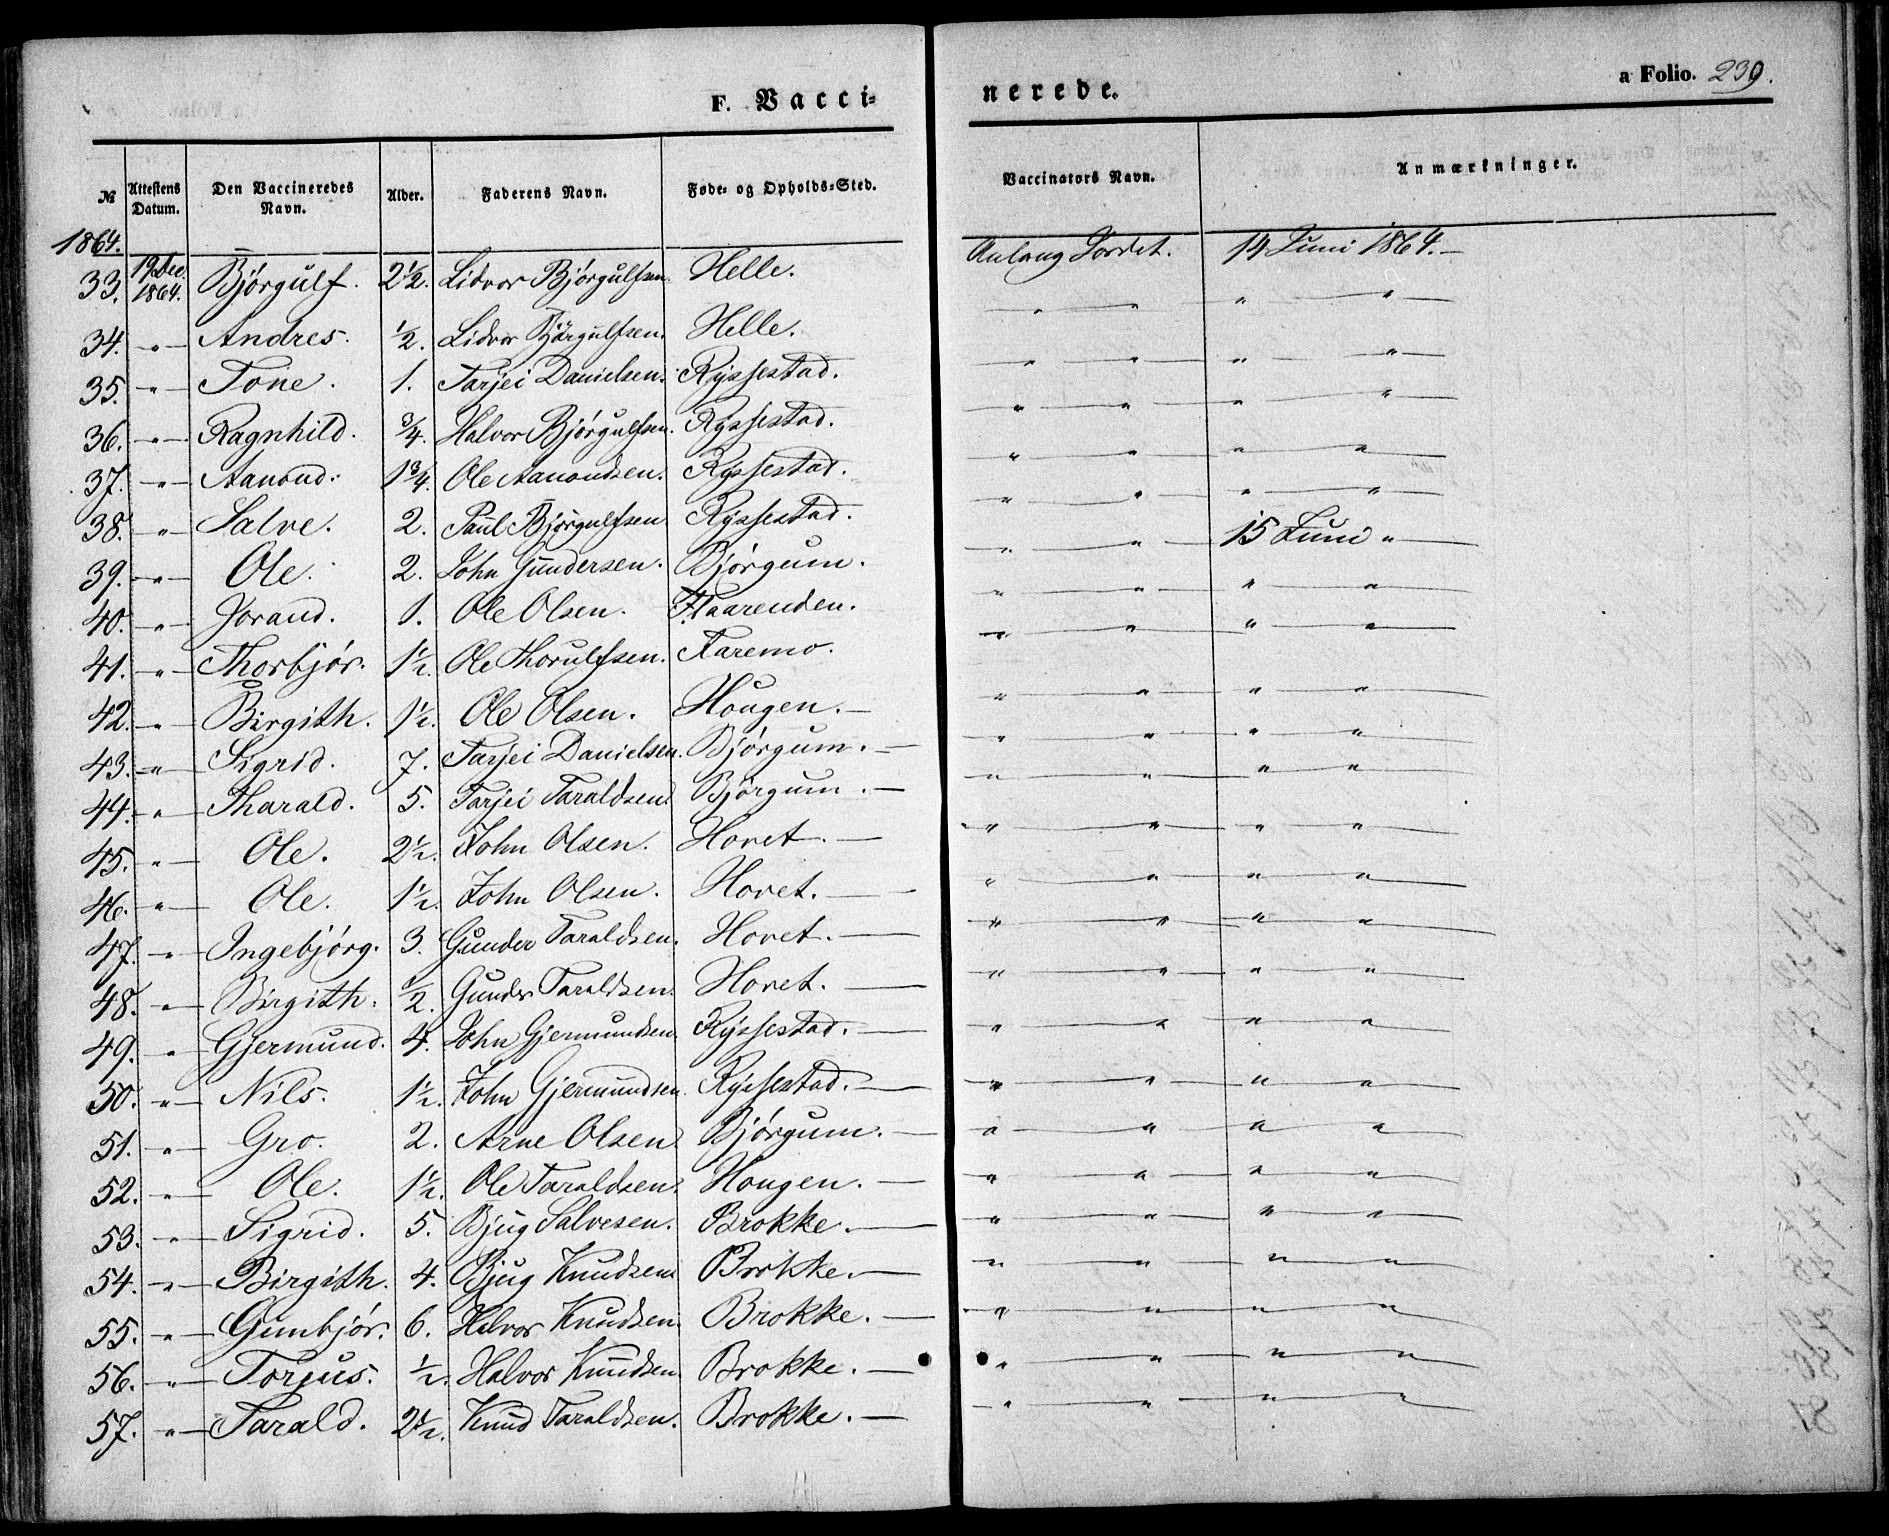 F. Vacci=
nerede.
a Folio. 239.
№
Attestens Datum.
Den Vaccineredes Navn.
Alder.
Faderens Navn.
Føde- og Opholds-Sted.
Vaccinators Navn.
Anmærkninger.
1864.
33. 19 Dec. 1864. Bjørgulf. 2½. Lidvor Bjørgulfsen. Helle. Aulaug Sordet. 14 Juni 1864. —
34. " Andres. ½. Lidvor Bjørgulfsen. Helle. " " " "
35. " Tone. 1. Tarjei Danielsen. Ryssestad. " " " "
36. " Ragnhild. ¾. Halvor Bjørgulfsen. Ryssestad. " " " "
37. " Aanond. 1¾. Ole Aanondsen. Ryssestad. " " " "
38. " Salve. 2. Paul Bjørgulfsen Ryssestad. " " " "
39. " Ole. 2. John Gundersen. Bjørgum. " " 15 Juni "
40. " Jorand. 1. Ole Olsen. Flaarenden. " " " "
41. " Thorbjør. 1½. Ole Thorulfsen. Faremo. " " " "
42. " Birgith. 1½. Ole Olsen. Hougen. — " " " "
43. " Sigrid. 7. Tarjei Danielsen. Bjørgum. — " " " "
44. " Tharald. 5. Tarjei Taraldsen. Bjørgum. — " " " "
45. " Ole. 2½. John Olsen. Hovet. — " " " "
46. " Ole. 1½. John Olsen. Hovet. — " " " "
47. " Ingebjørg. 3. Gunder Taraldsen. Hovet. — " " " "
48. " Birgith. ½. Gunder Taraldsen. Hovet. — " " " "
49. " Gjermund. 4. John Gjermundsen. Ryssestad. — " " " "
50. " Nils. 1½. John Gjermundsen. Ryssestad. — " " " "
51. " Gro. 2. Arne Olsen. Bjørgum. — " " " "
52. " Ole. 1½. Ole Taraldsen. Hougen. — " " " "
53. " Sigrid. 5. Bjug Salvesen. Brokke. — " " " "
54. " Birgith. 4. Bjug Knudsen. Brokke. — " " " "
55. " Gunbjør. 6. Halvor Knudsen. Brokke. — " " " "
56. " Torjus. ½. Halvor Knudsen. Brokke. — " " " "
57. " Tarald. 2½. Knud Taraldsen. Brokke. — " " " "